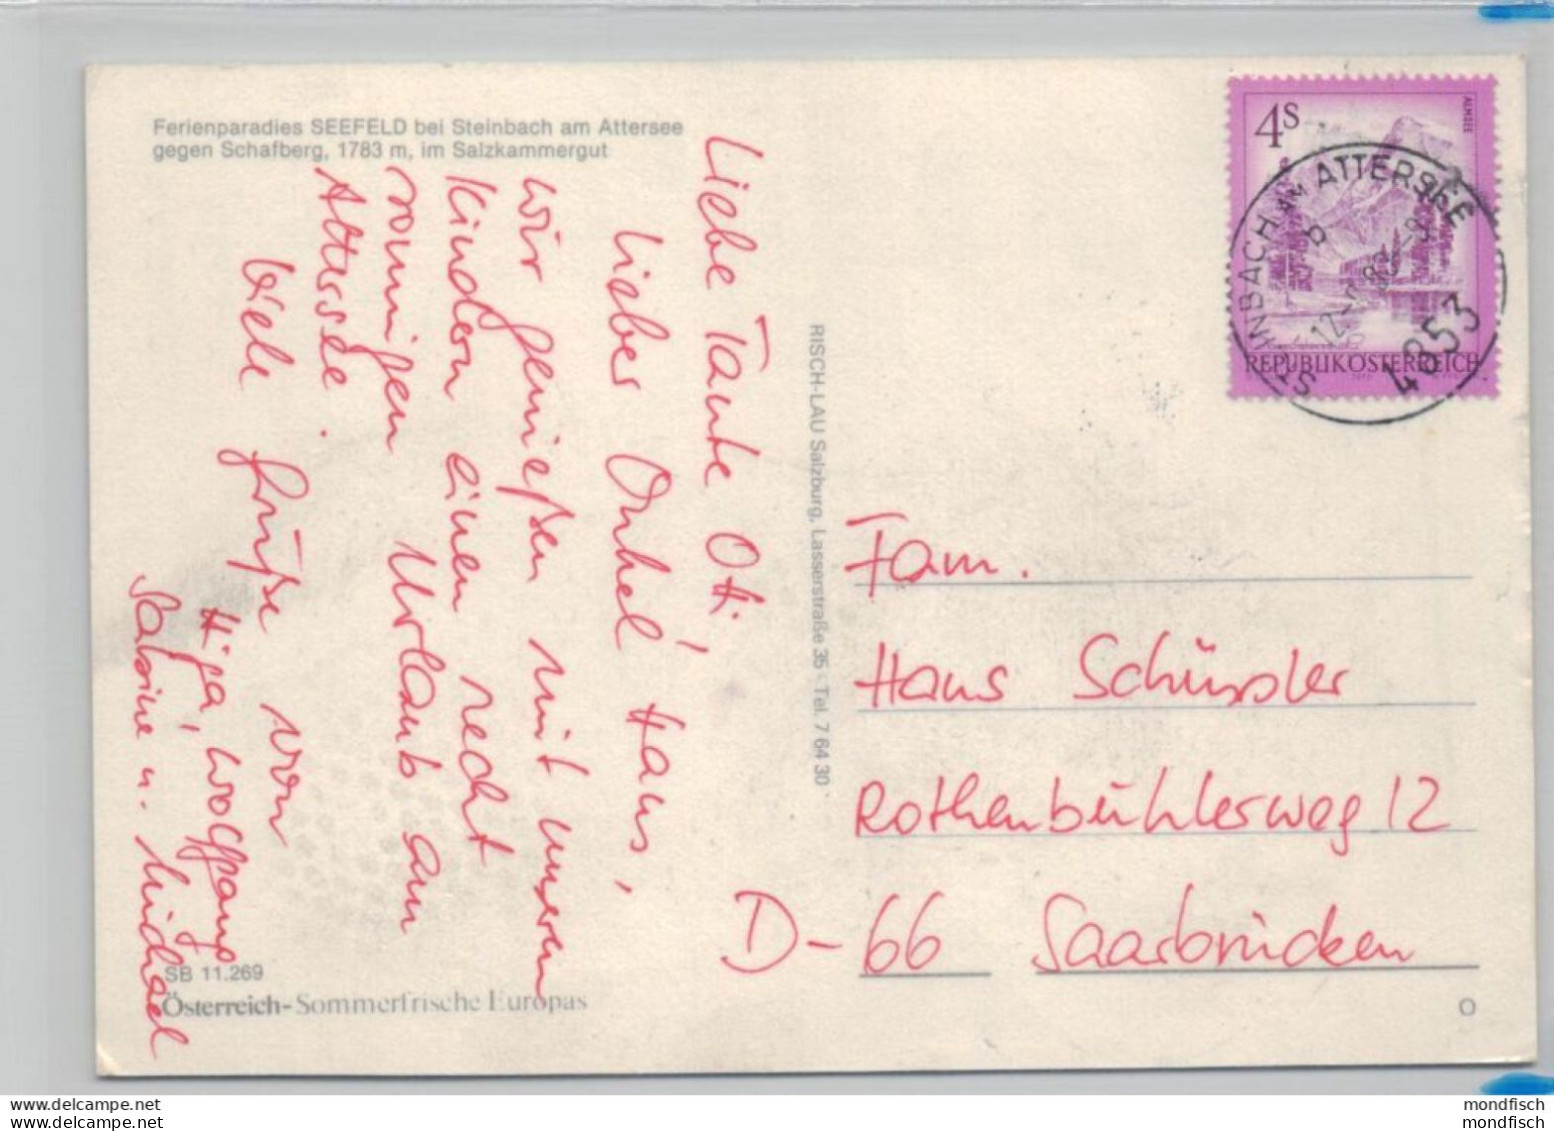 Ferienparadies SEEFELD bei Steinbach am Attersee
gegen Schafberg, 1783 m, im Salzkammergut
Liebe Tante Otti,
lieber Onkel Hans,
wir genießen mit unseren
Kindern einen recht
sonnigen Urlaub am
Attersee.
Viele Grüße von
Wolfgang
Sabine u. Michael
SB 11.269
Österreich-Sommerfrische Europas
RISCH-LAU Salzburg, Lasserstraße 35 · Tel. 7 64 30
4S
ALMSEE
REPUBLIK ÖSTERREICH
STEINBACH AM ATTERSEE
4853
Fam.
Hans Schüssler
Rothenbühlerweg 12
D-66 Saarbrücken
O
www.delcampe.net
www.delcampe.net
mondfisch
mondfisch